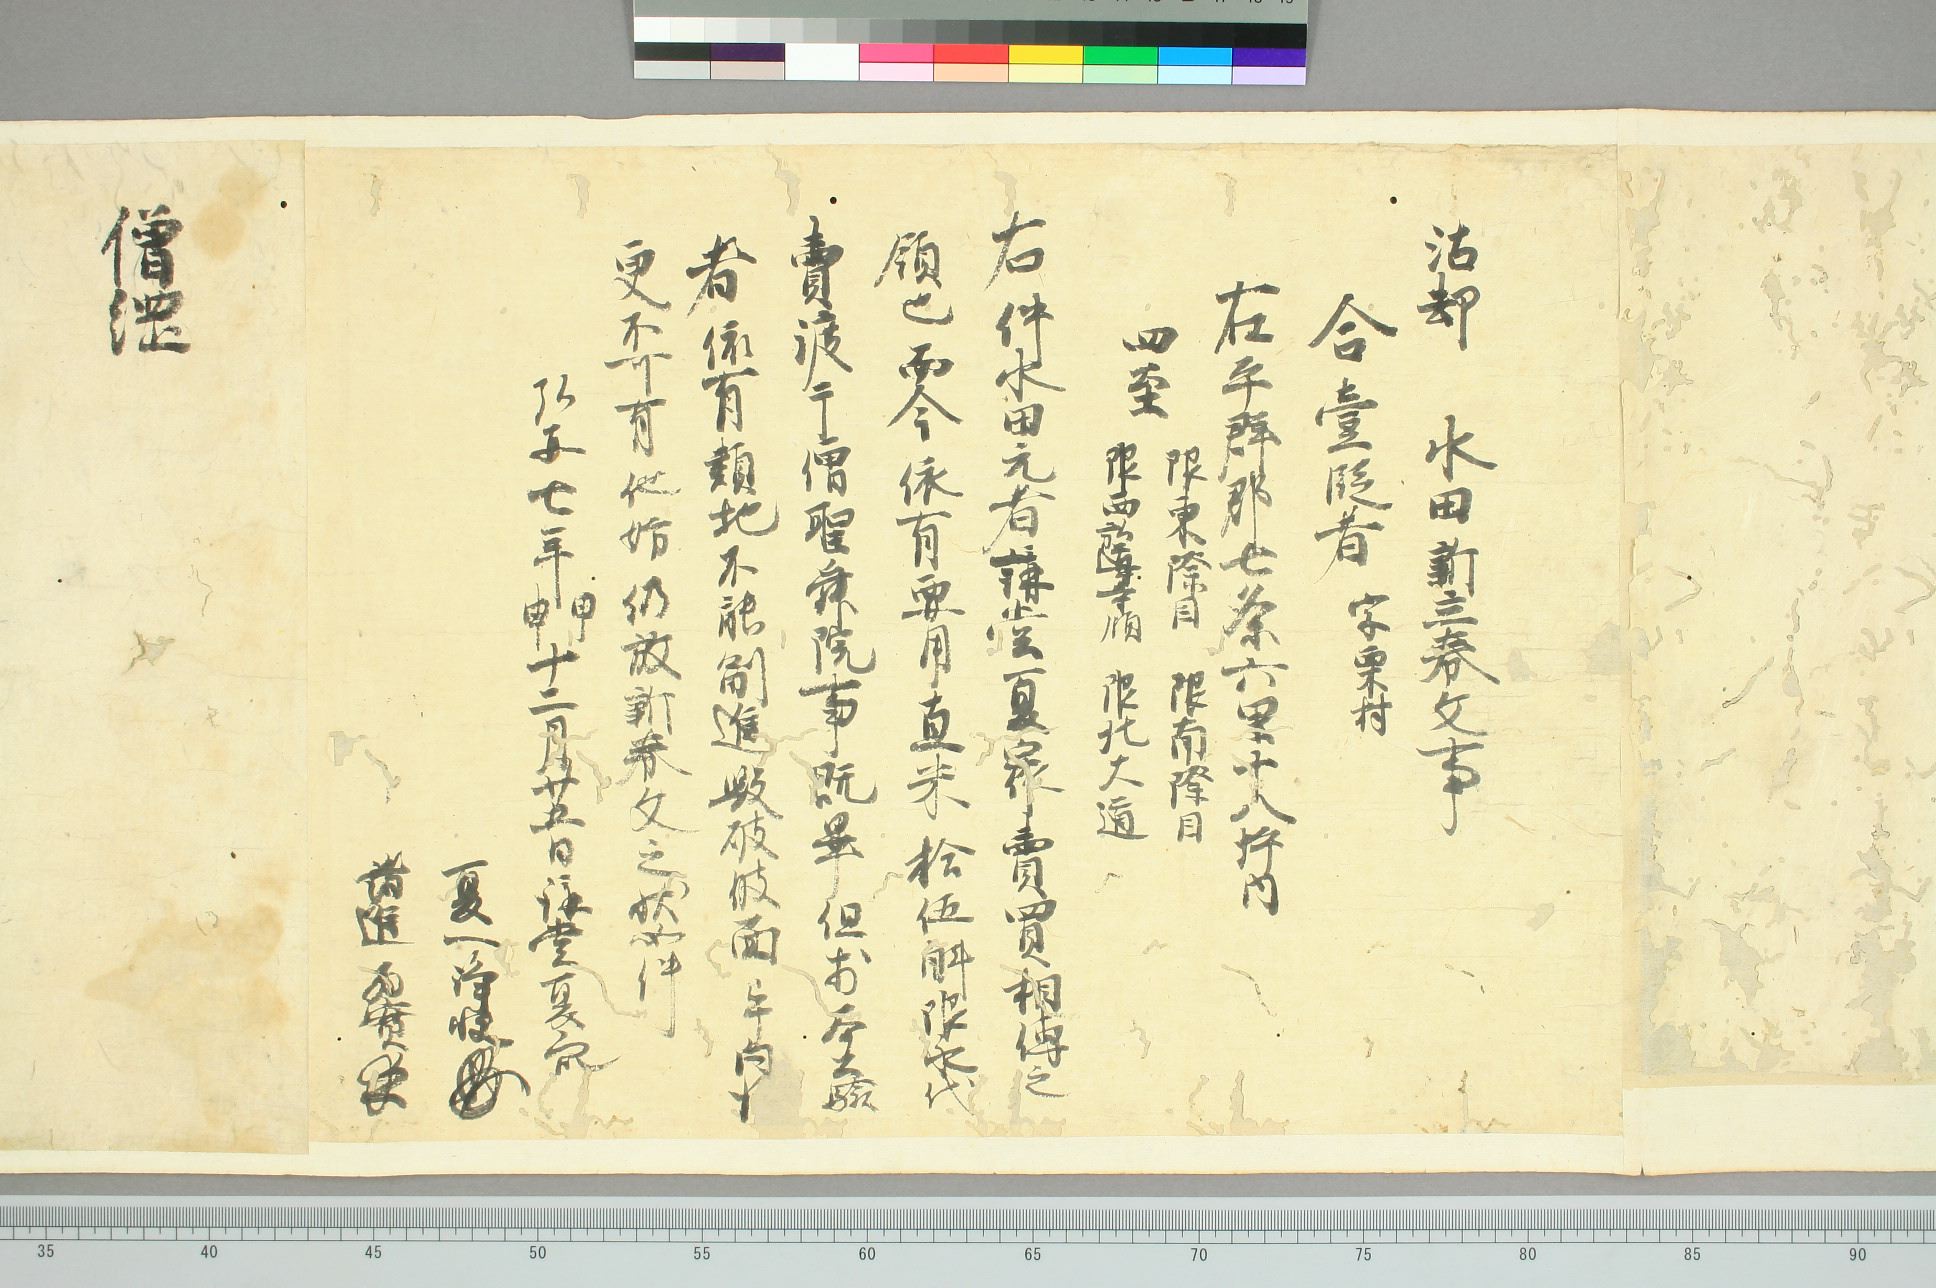 沽却 水田新立券文事
合壹段者 字栗村
在平群郡七条六里十八坪内
四至 限東際目 限南際目
限西 限北大道
右件水田元者講堂夏衆中賣買相傳之
領也而今依有要用直米拾伍斛限永代
賣渡于僧聖舜院事既畢但於本公驗
者依有類地不能副進毀破彼面年内
更不可有他妨仍放新券文之状如件
弘安七年甲申十二月廿五日講堂夏衆
夏一
諸進
僧
35 40 45 50 55 60 65 70 75 80 85 90